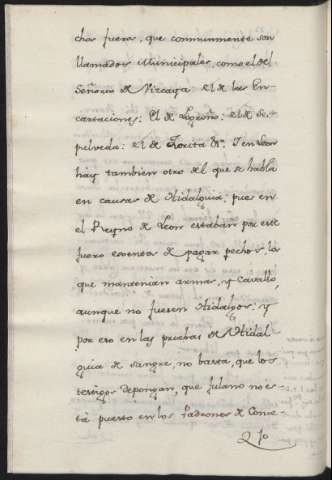 chos fueros, que communmente son
llamados Municipales, como el del
Señorio de Vizcaya: el de las En-
cartaciones: El de Logroño: el de Se-
pulveda: el de Zorita &a. Y en Leon
hay tambien otro del que se habla
en causas de Hidalguia, pues en
el Reyno de Leon estaban por este
fuero esentos de pagar pechos, los
que mantenian armas, y Cavallo,
aunque no fuesen Hidalgos: y
por eso en las pruebas de Hidal-
guia de sangre, no basta, que los
testigos depongan, que fulano no es-
tá puesto en los Padrones de Conce-